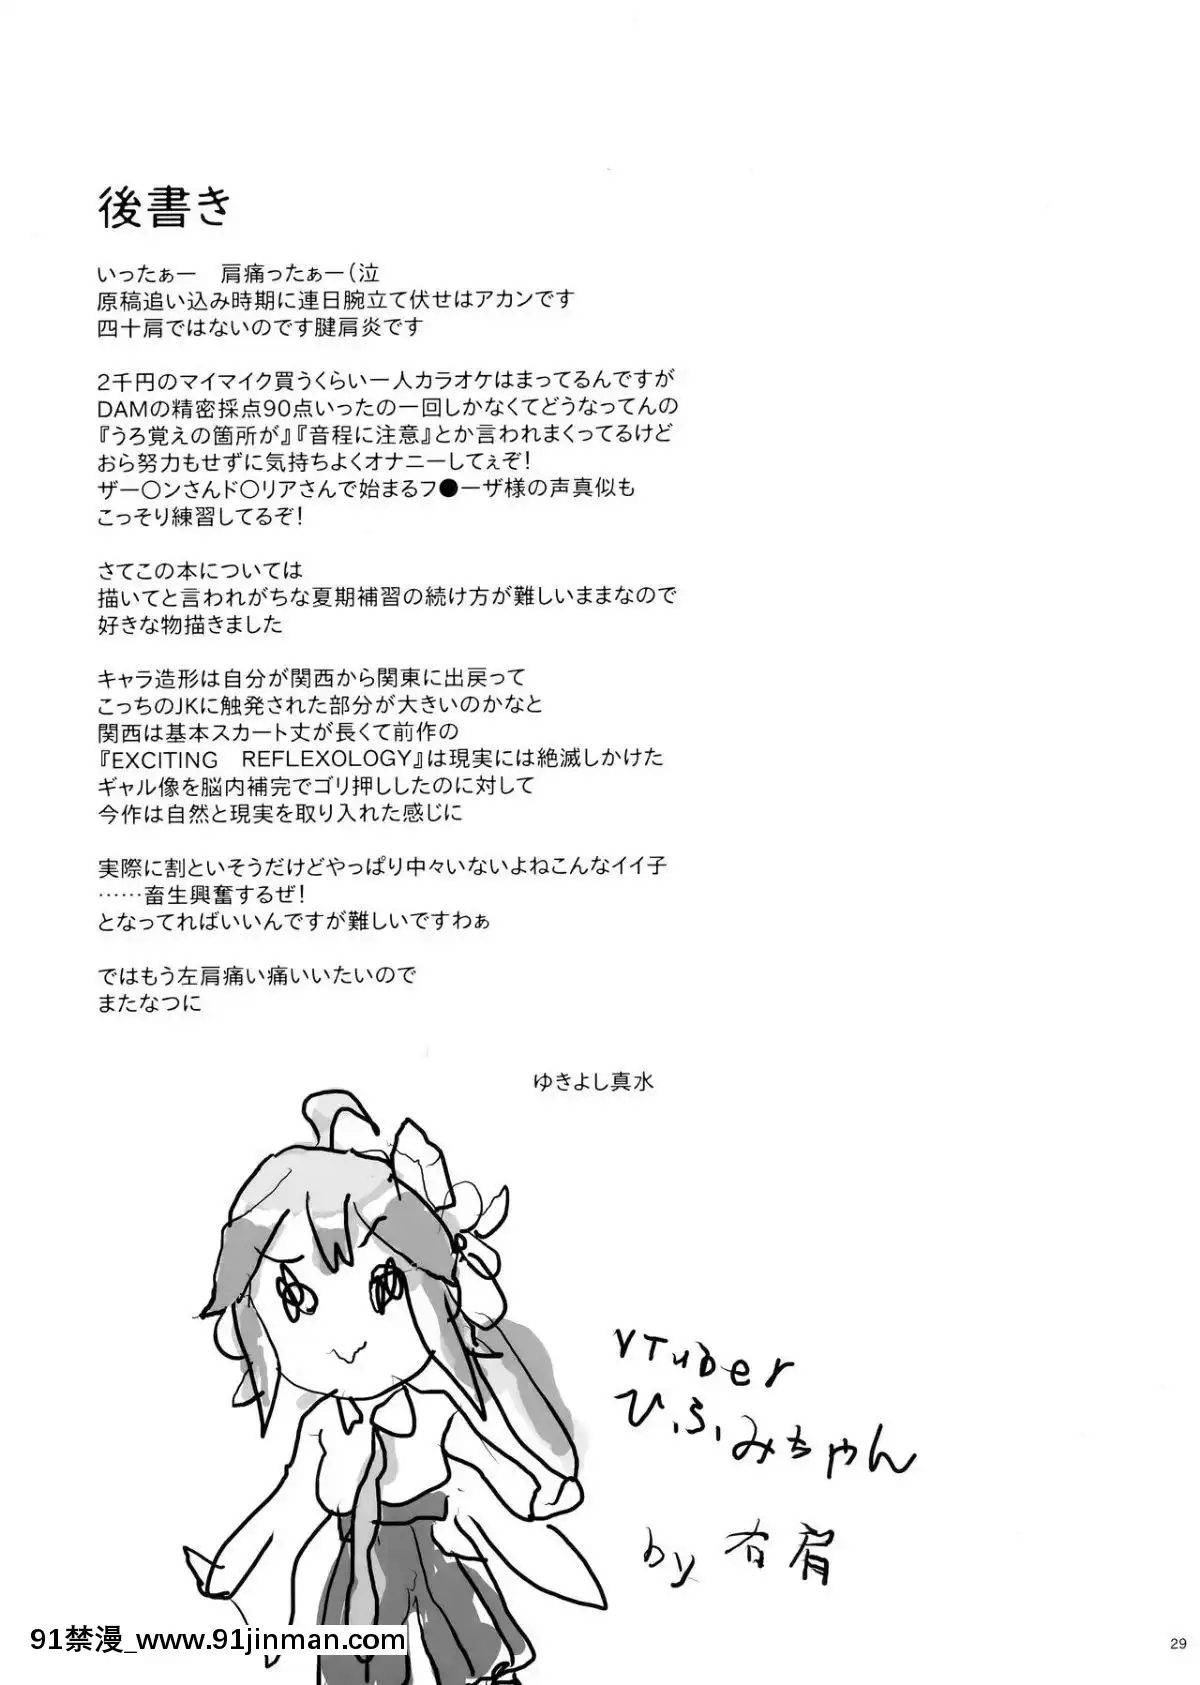 後書き
いったぁー　肩痛ったぁー(泣
原稿追い込み時期に連日腕立て伏せはアカンです
四十肩ではないのです腱肩炎です
2千円のマイマイク買うくらい一人カラオケはまってるんですが
DAMの精密採点90点いったの一回しかなくてどうなってんの
『うろ覚えの箇所が』『音程に注意』とか言われまくってるけど
おら努力もせずに気持ちよくオナニーしてぇぞ!
ザー〇ンさんド〇リアさんで始まるフ●ーザ様の声真似も
こっそり練習してるぞ!
さてこの本については
描いてと言われがちな夏期補習の続け方が難しいままなので
好きな物描きました
キャラ造形は自分が関西から関東に出戻って
こっちのJKに触発された部分が大きいのかなと
関西は基本スカート丈が長くて前作の
『EXCITING　REFLEXOLOGY』は現実には絶滅しかけた
ギャル像を脳内補完でゴリ押ししたのに対して
今作は自然と現実を取り入れた感じに
実際に割といそうだけどやっぱり中々いないよねこんなイイ子
……畜生興奮するぜ!
となってればいいんですが難しいですわぁ
ではもう左肩痛い痛いいたいので
またなつに
ゆきよし真水
VTuber
ひふみちゃん
by 右肩
91禁漫_www.91jinman.com
29